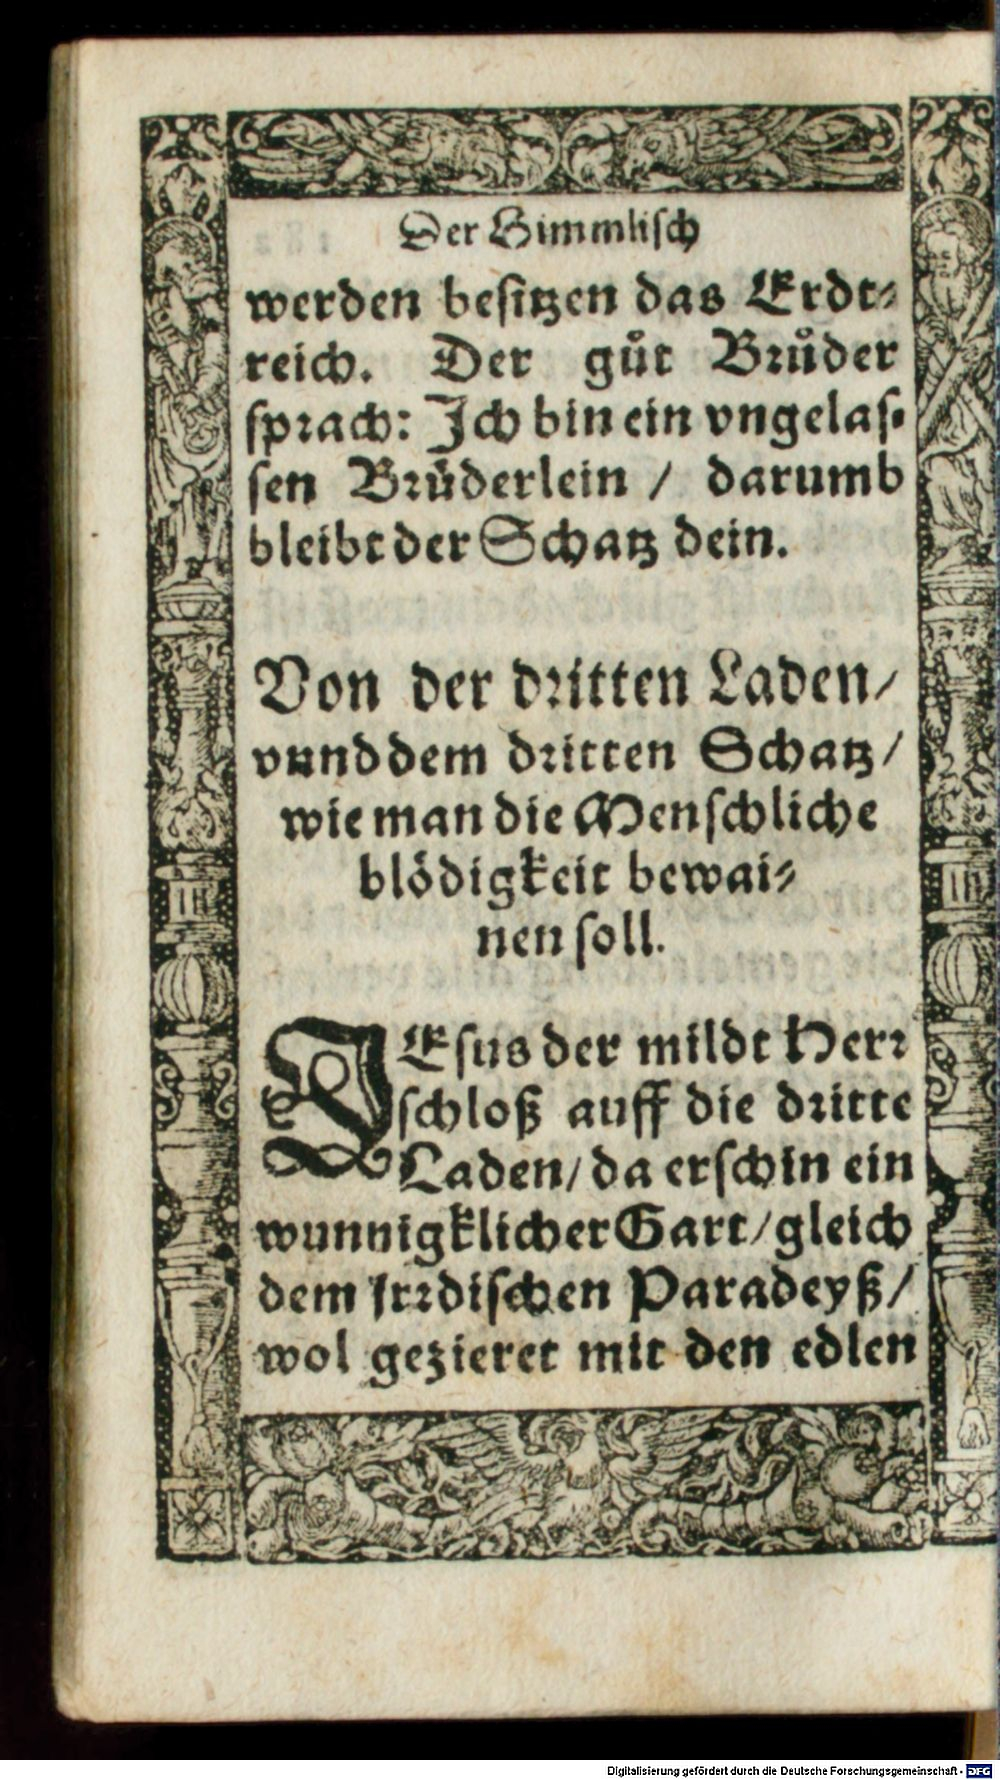 Der Himmlisch
werden besitzen das Erdt⸗
reich. Der guͦt Bruͦder
sprach: Ich bin ein vngelas⸗
sen Bruͤderlein / darumb
bleibt der Schatz dein.
Von der dritten Laden/
vnnd dem dritten Schatz/
wie man die Menschliche
blödigkeit bewai⸗
nen soll.
JEsus der mildt Herr
schloß auff die dritte
Laden/ da erschin ein
wunnigklicher Gart/ gleich
dem Irrdischen Paradeyß/
wol gezieret mit den edlen
Digitalisierung gefördert durch die Deutsche Forschungsgemeinschaft - DFG